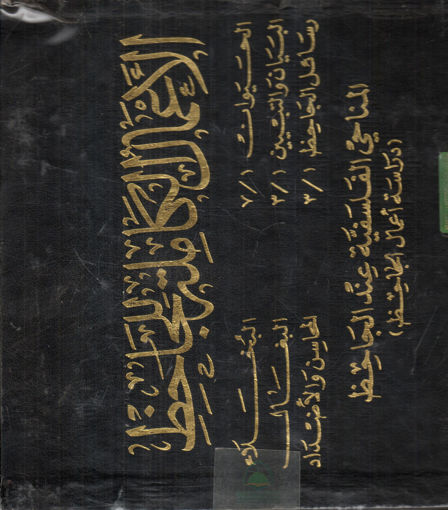 الأعمال الكاملة للجاحظ
الحيوان ٧/١
البيان والتبيين ٣/١
رسائل الجاحظ ٣/١
البخلاء
البغال
المحاسن والأضداد
المناحي الفلسفية عند الجاحظ
(دراسة أعمال الجاحظ)